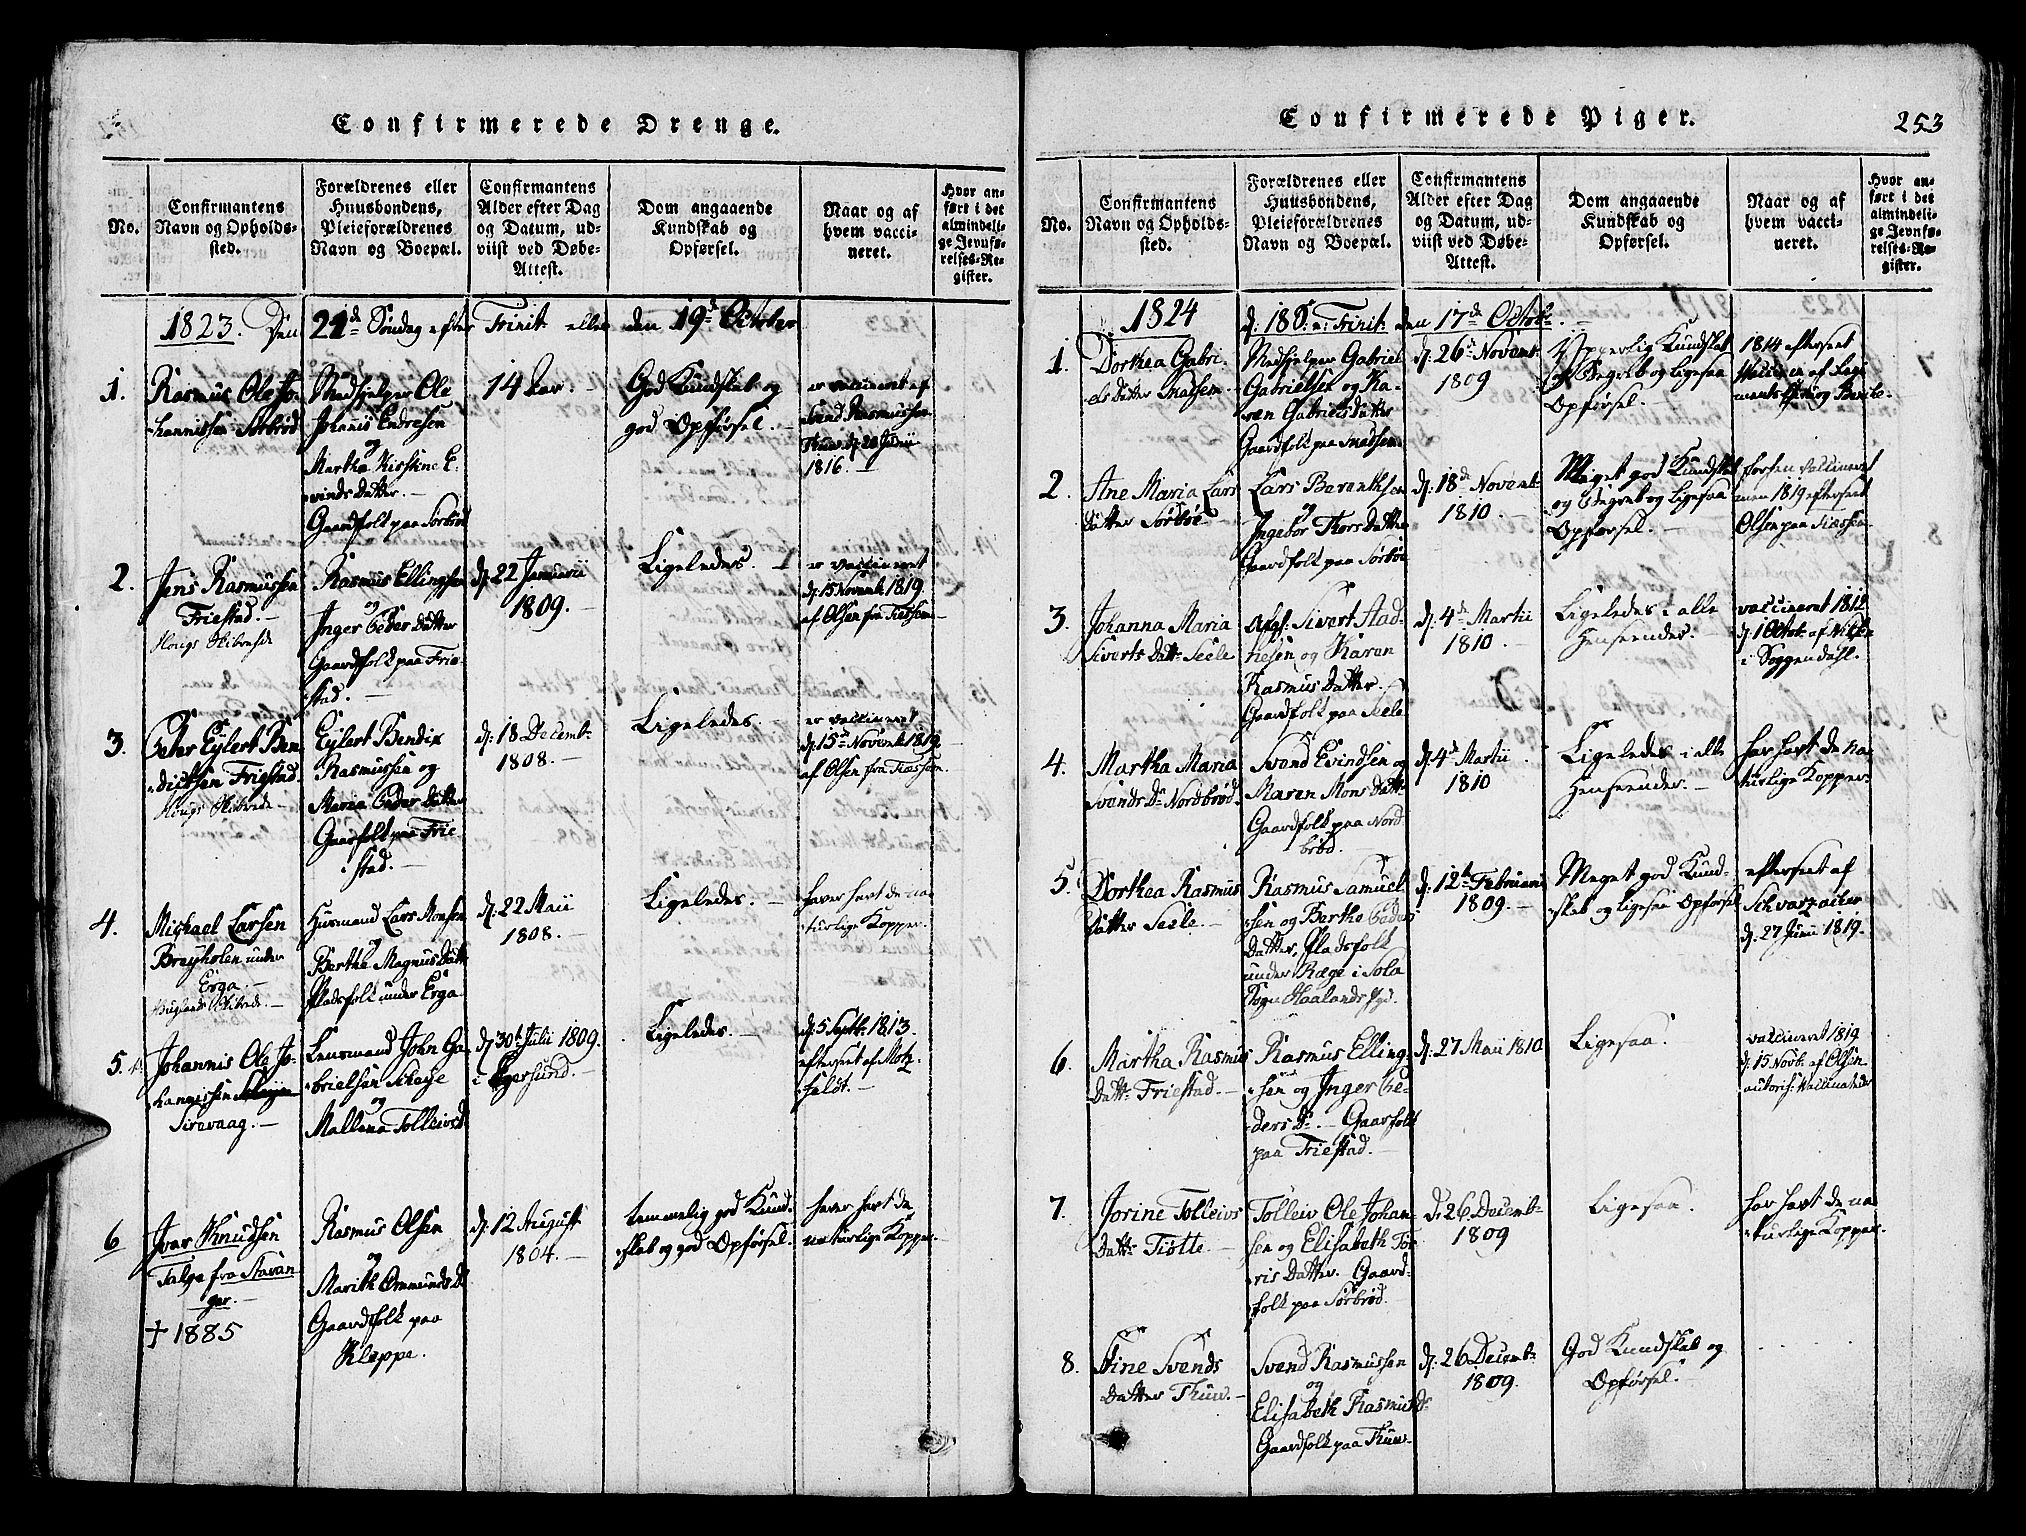 Confirmerede Drenge.
No.
Confirmantens
Navn og Opholds-
sted.
Forældrenes eller
Huusbondens,
Pleieforældrenes
Navn og Boepæl.
Confirmantens
Alder efter Dag
og Datum, ud-
viist ved Døbe-
Attest.
Dom angaaende
Kundskab og
Opførsel.
Naar og af
hvem vacci-
neret.
Hvor an-
ført i det
almindeli-
ge Jevnfø-
relses-Re-
gister.
1823. Den 21de Søndag efter Trinit: eller den 19de October
1.
Rasmus Ole Jo-
hannissen Sørbrød
Medhjelper Ole
Johanis Endresen
og
Martha Kistine E-
vinds Datter.
Gaardfolk paa Sørbrød
14 Aar.
God Kundskab og
god Opførsel.
er vaccineret af
Svend Rasmussen
Thuu d. 20 Junii
1816.
2.
Jens Rasmussen
Friestad.
Hougs Skibrede
Rasmus Ellingsen
og
Inger Peder Datter
Gaardfolk paa Frie-
stad.
d: 22 Januarii
1809.
Ligeledes.
er vaccineret
d: 15 Novemb: 1819.
af Olsen fra Tiæssem
3.
Peter Eylert Ben-
dictsen Friestad.
Hougs Skibrede
Eylert Bendix
Rasmussen og
Maren Peder Datter
Gaardfolk paa Frie-
stad.
d: 18 Decemb:
1808.
Ligeledes.
er vaccineret
d: 15de Novemb: 1819
af Olsen fra Tiæssem.
4.
Michael Larsen
Breyholen under
Erga.
Huusmand Lars Monsen
og
Berthe Magnus Datt:
Pladsfolk under Erga
d: 22 Maii
1808.
Ligeledes.
haver havt de na-
turlige Kopper.
5.
Johannis Ole Jo-
hannissen
Sirevaag.
Lensmand John Ga-
brielsen Skaye
og
Mallena Tolleivsd:
d: 30te Julii 1809.
i Egersund.
Ligeledes.
d: 5 Septb: 1813.
efterseet af Motz-
feldt.
6
Ivar Knudsen
Talge fra Stavan-
ger.
† 1885
Rasmus Olsen
og
Marith Ommunds D:
Gaardfolk paa
Kleppe.
d: 12 August
1804.
temmelig god Kund-
skab og god Opførsel.
haver havt de
naturlige Kopper.
Confirmerede Piger.
253
No.
Confirmantens
Navn og Opholds-
sted.
Forældrenes eller
Huusbondens,
Pleieforældrenes
Navn og Boepæl.
Confirmantens
Alder efter Dag
og Datum, ud-
viist ved Døbe-
Attest.
Dom angaaende
Kundskab og
Opførsel.
Naar og af
hvem vacci-
neret.
Hvor an-
ført i det
almindeli-
ge Jevnfø-
relses-Re-
gister.
1824 d: 18 S: e: Trinit: den 17de Octob:
1.
Dorthea Gabri-
els Datter
Medhjelper Gabriel
Gabrielsen og Ka-
ren Gabriels Datter
Gaardfolk paa
d: 26de Novemb:
1809
Ypperlig Kundskab
og Begreb og ligesaa
Opførsel.
1814 efterseet
2.
Ane Maria Lars
Datter Sørbøe
Lars Berenthsen
og
Ingebor Thors Datter
Gaardfolk paa Sørbøe
d: 18de Novemb:
1810.
Meget god Kundskab
og Begreb og ligesaa
Opførsel.
forhen vaccineret
men 1819 efterseet
Olsen paa Tiæssem
3.
Johanna Maria
Siverts Datt: Seele
Afg: Sivert Aad-
nesen og Karen
Rasmus Datter.
Gaardfolk paa Seele
d: 4de Martii
1810.
Ligeledes i alle
Henseender.
vaccineret 1812
d: 1 Octob: af Nilsen
i Soggendahl.
4.
Martha Maria
Svends Dr Nordbrød.
Svend Evindsen og
Maren Mons Datt:
Gaardfolk paa Nord-
brød.
d: 4de Martii
1810
Ligeledes i alle
Henseender.
har havt de na-
turlige Kopper.
5.
Dorthea Rasmus
Datter Seele.
Rasmus Samuel-
sen og Bertha Peders
Datter, Pladsfolk
under Ræge i Sola
Sogn Haalands Pgd.
d: 12te Februarii
1809.
Meget god Kund-
skab og ligesaa Opførsel
efterseet af
Schvarzacker
d: 27 Junii 1819.
6.
Martha Rasmus
Datt: Friestad.
Rasmus Elling-
sen og Inger Pe-
ders Dr. Gaardfolk
paa Friestad.
d: 27 Maii 1810
Ligesaa.
vaccineret 1819
d: 15 Novb: af Olsen
autoris: Vaccinateur
7.
Josine Tolleivs
Datt: Tiøtte.
Tolleiv Ole Johan-
sen og Elisabeth Tør-
ris Datter. Gaard-
folk paa Sørbrød.
D: 26 Decemb:
1809
Ligesaa.
har havt de na-
turlige Kopper.
8.
Stine Svends
Datter Thuu.
Svend Rasmussen
og
Elisabeth Rasmus Dr
Gaardfolk paa Thuu.
d: 26 Decemb:
1809.
God Kundskab og
Opførsel.